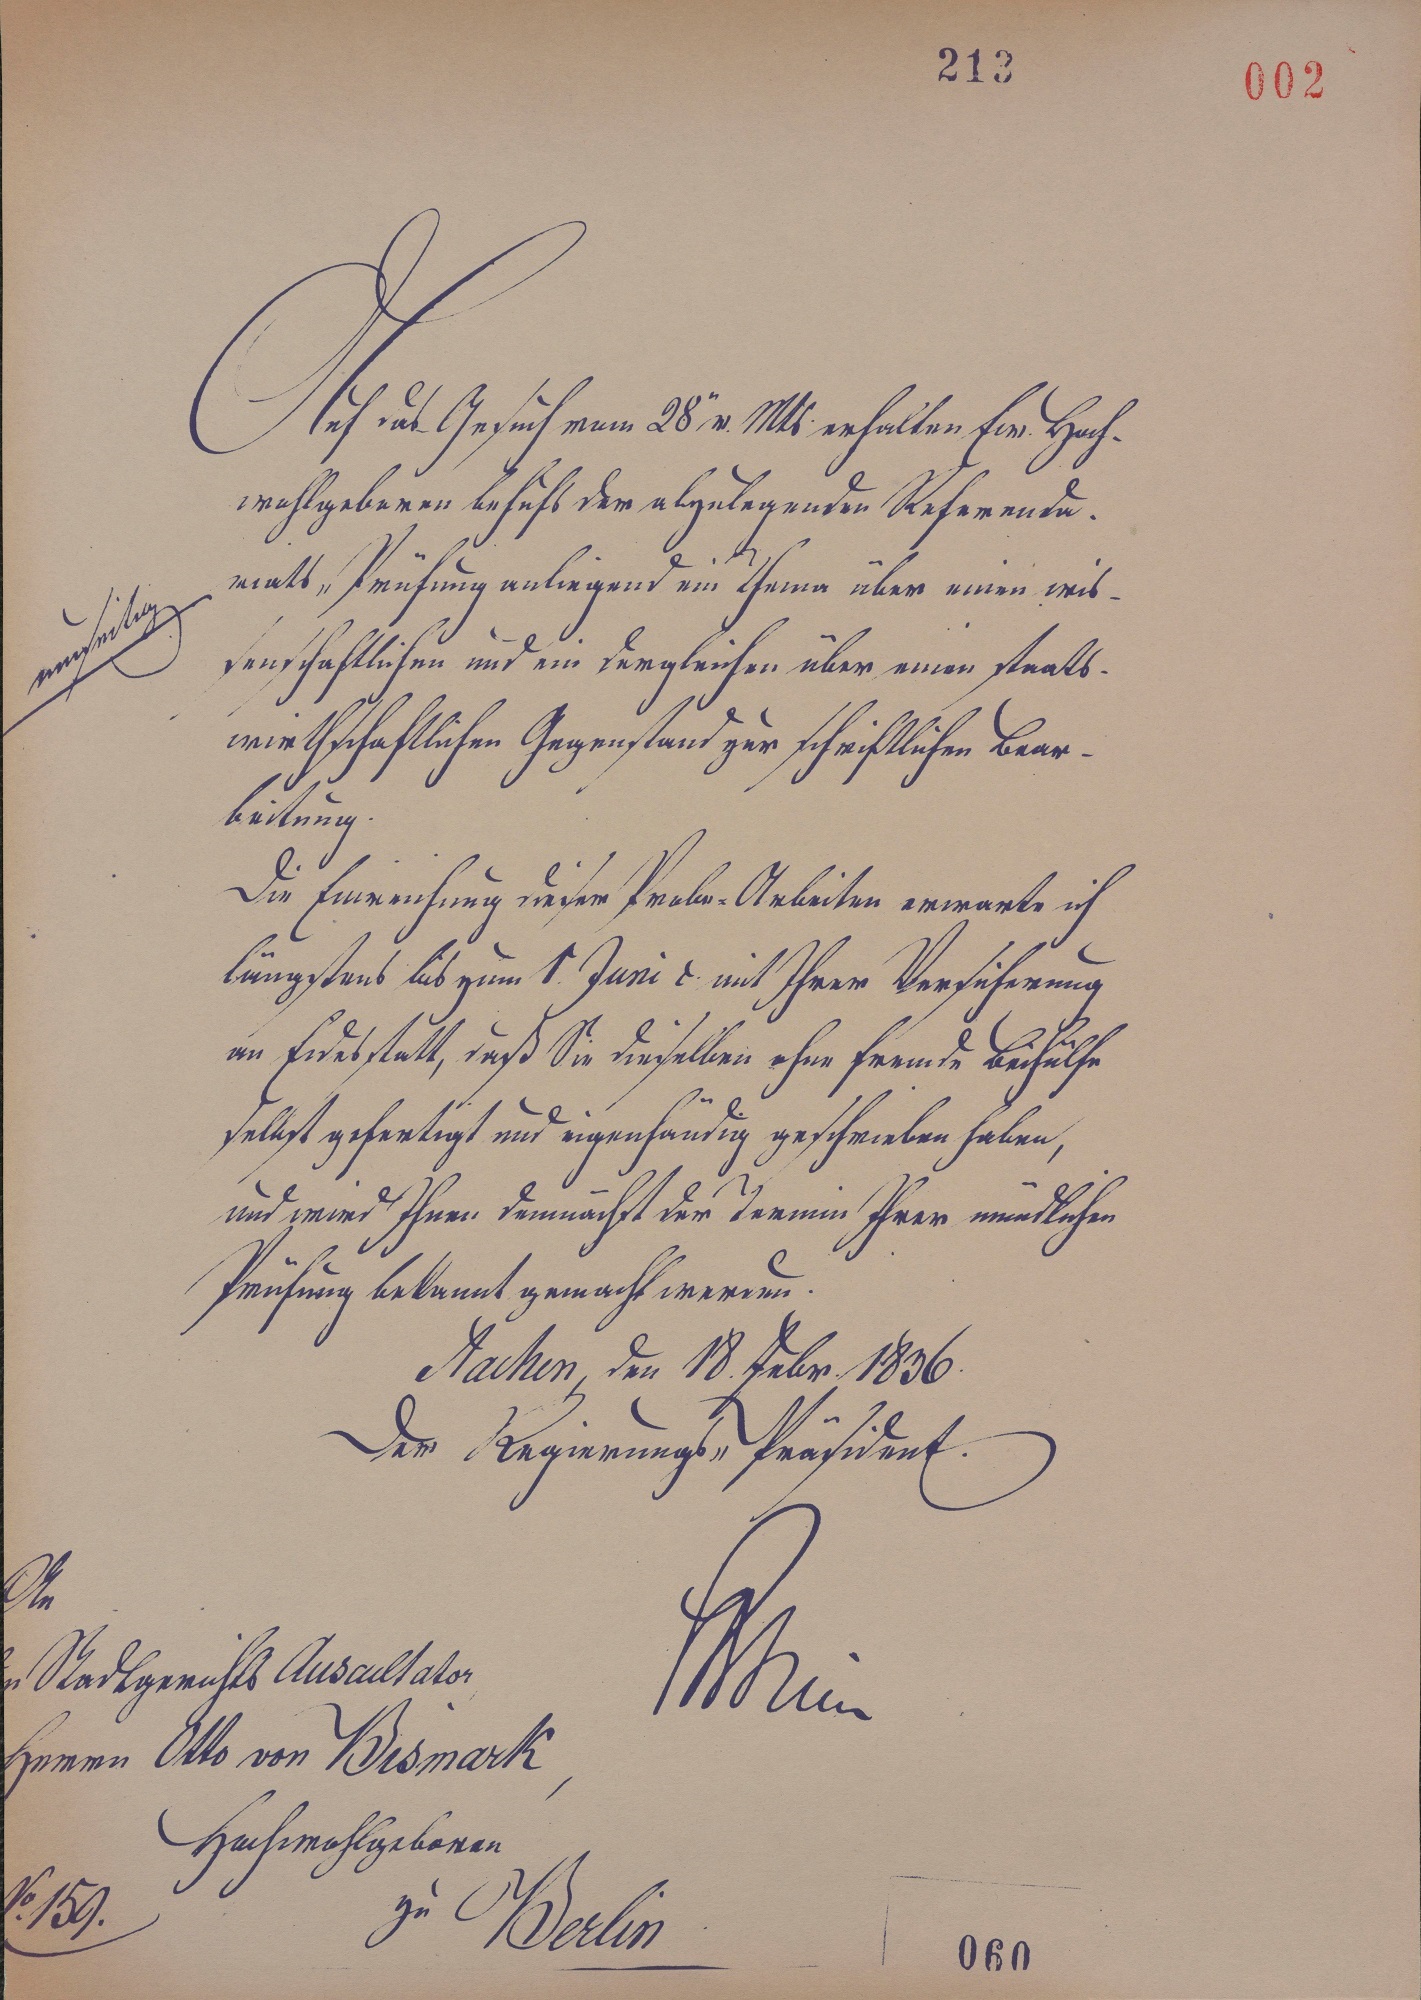 213
002
Auf das Gesuch vom 28n v. Mts. erhalten Ew. Hoch-
wohlgeboren behufs der abzulegenden Referenda-
riats-Prüfung anliegend ein Thema über einen wis-
senschaftlichen und ein dergleichen über einen staats-
wirthschaftlichen Gegenstand zur schriftlichen Bear-
beitung.
Die Einreichung dieser Probe-Arbeiten erwarte ich
längstens bis zum 1. Juni c. mit Ihrer Versicherung
an Eidesstatt, daß Sie dieselben ohne fremde Beihülfe
selbst gefertigt und eigenhändig geschrieben haben,
und wird Ihnen demnächst der Termin Ihrer mündlichen
Prüfung bekannt gemacht werden.
Aachen, den 18. Febr. 1836.
Der Regierungs-Präsident.
An
Stadtgerichts Auscultator
Herrn Otto von Bismark,
Hochwohlgeboren
zu Berlin
No. 159.
060